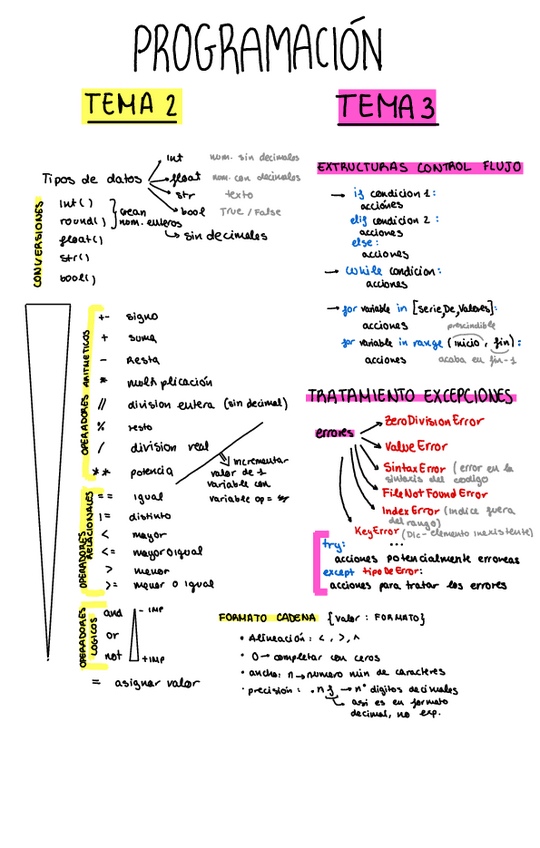 PROGRAMACIÓN
TEMA 2
Tipos de datos
int num. sin decimales
float num. con decimales
str texto
bool True / False
CONVERSIONES
int()
round()
crean
num. enteros
sin decimales
float()
str()
bool()
OPERADORES ARITMETICOS
+- signo
+ suma
- Resta
* multiplicación
// division entera (sin decimal)
% resto
/ division real
** potencia
incrementar
valor de 1
variable con
variable op=
OPERADORES
RELACIONALES
== igual
!= distinto
< mayor
<= mayor o igual
> menor
>= menor o igual
OPERADORES
LOGICOS
and - IMP
or
not + IMP
= asignar valor
TEMA 3
EXTRUCTURAS CONTROL FLUJO
→ if condicion 1:
acciones
elif condicion 2:
acciones
else:
acciones
→ while condicion:
acciones
→ for variable in [serie,De,Valores]:
acciones prescindible
for variable in range (inicio, fin):
acciones acaba en fin-1
TRATAMIENTO EXCEPCIONES
errores
ZeroDivisionError
ValueError
SintaxError (error en la
sintaxis del codigo
FileNotFoundError
IndexError (indice fuera
del rango)
KeyError (Dic- elemento inexistente)
...
try:
acciones potencialmente erroneas
except tipoDeError:
acciones para tratar los errores
FORMATO CADENA {valor : FORMATO}
• Alineación: <, >, ^
• 0→ completar con ceros
• ancho: n→ numero min de caracteres
• precisión: .nf → nº digitos decimales
asi es en formato
decimal, no exp.